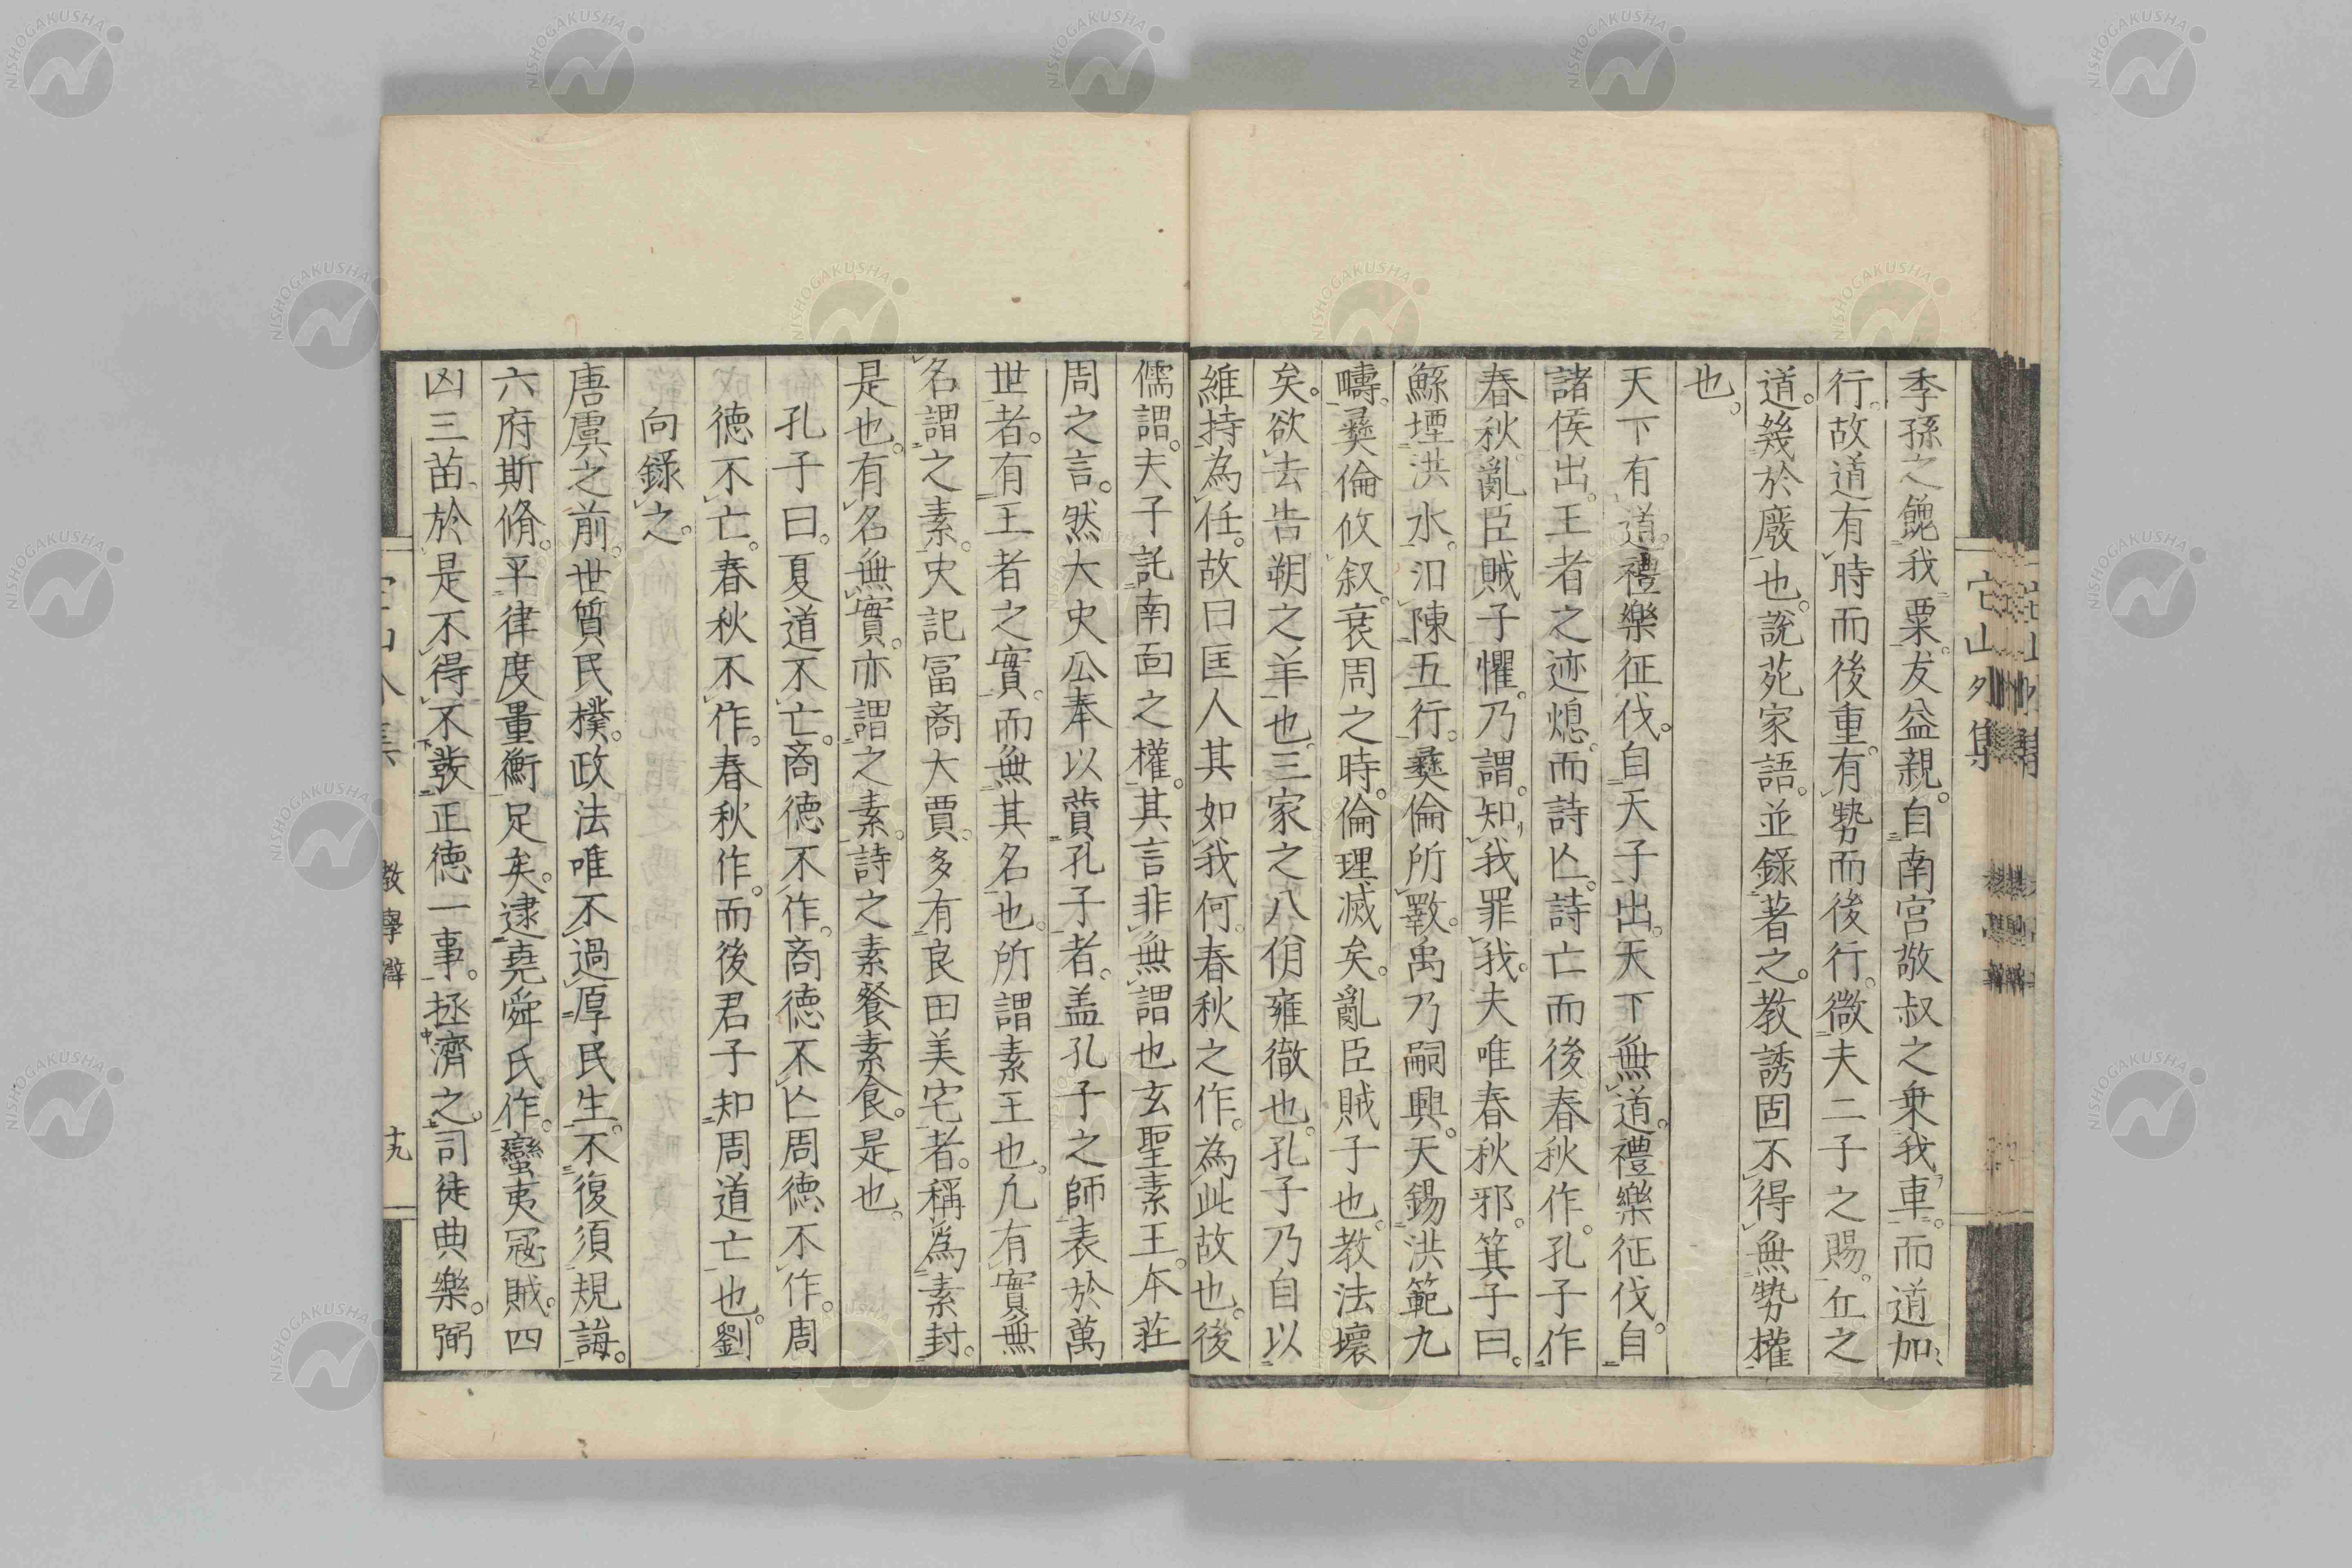 季孫之餽我粟。友益親。自南宮敬叔之乗我車。而道加
行。故道有時而後重。有勢而後行。微夫二子之賜。丘之
道。幾於廢也。說苑家語。並錄著之。教誘固不得無勢權
也。
天下有道。禮樂征伐。自天子出。天下無道。禮樂征伐。自
諸侯出。王者之迹熄。而詩亾。詩亡而後春秋作。孔子作
春秋。亂臣賊子懼。乃謂。知我罪我。夫唯春秋邪。箕子曰。
鯀堙洪水。汩陳五行。彝倫所斁。禹乃嗣興。天錫洪範九
疇。彝倫攸叙。衰周之時。倫理滅矣。亂臣賊子也。教法壞
矣。欲去告朔之羊也。三家之八佾雍徹也。孔子乃自以
維持為任。故曰匡人其如我何。春秋之作。為此故也。後
儒謂。夫子託南面之權。其言非無謂也玄聖素王。本莊
周之言。然大史公奉以贊孔子者。盖孔子之師表於萬
世者。有王者之實。而無其名也。所謂素王也。凢有實無
名謂之素。史記冨商大賈。多有良田美宅者。稱為素封。
是也。有名無實。亦謂之素。詩之素餐素食。是也。
孔子曰。夏道不亡。商德不作。商德不亾周德不作。周
德不亡。春秋不作。春秋作。而後君子知周道亡也。劉
向錄之。
唐虞之前。世質民樸。政法唯不過厚民生。不復須規誨。
六府斯脩。平律度量衡足矣。逮堯舜氏作。蠻夷冦賊。四
凶三苗。於是不得不發正德一事。拯濟之。司徒典樂。弼
宅山外集
教學辯
十九
NISHOGAKUSHA